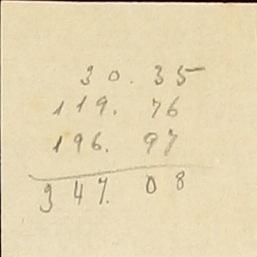 30.35
119.76
196.97
347.08